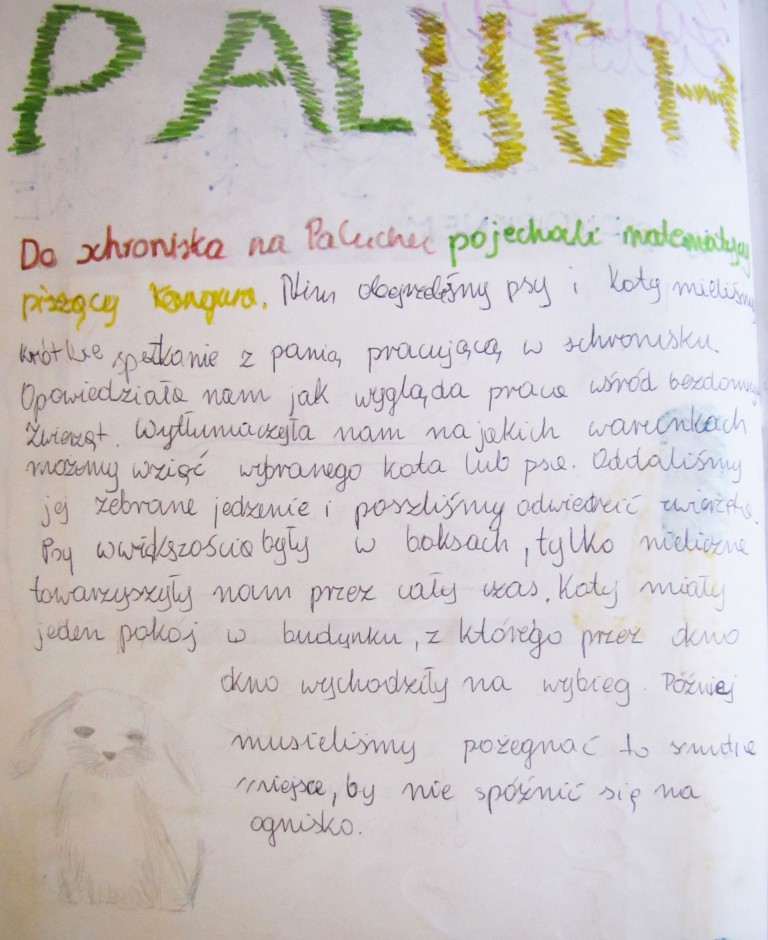 PALUCH
Do schroniska na Paluchu pojechali matematycy
piszący Kangura. Nim obejrzeliśmy psy i koty mieliśmy
krótkie spotkanie z panią pracującą w schronisku.
Opowiedziała nam jak wygląda praca wśród bezdomnych
zwierząt. Wytłumaczyła nam na jakich warunkach
możmy wziąć wybranego kota lub psa. Oddaliśmy
jej zebrane jedzenie i poszliśmy odwiedzić zwierzęta.
Psy wwiększościa były w boksach, tylko nieliczne
towarzyszyły nam przez cały czas. Koty miały
jeden pokój w budynku, z którego przez okno
okno wychodziły na wybieg. Później
musieliśmy pożegnać to smutne
miejsce, by nie spóźnić się na
ognisko.